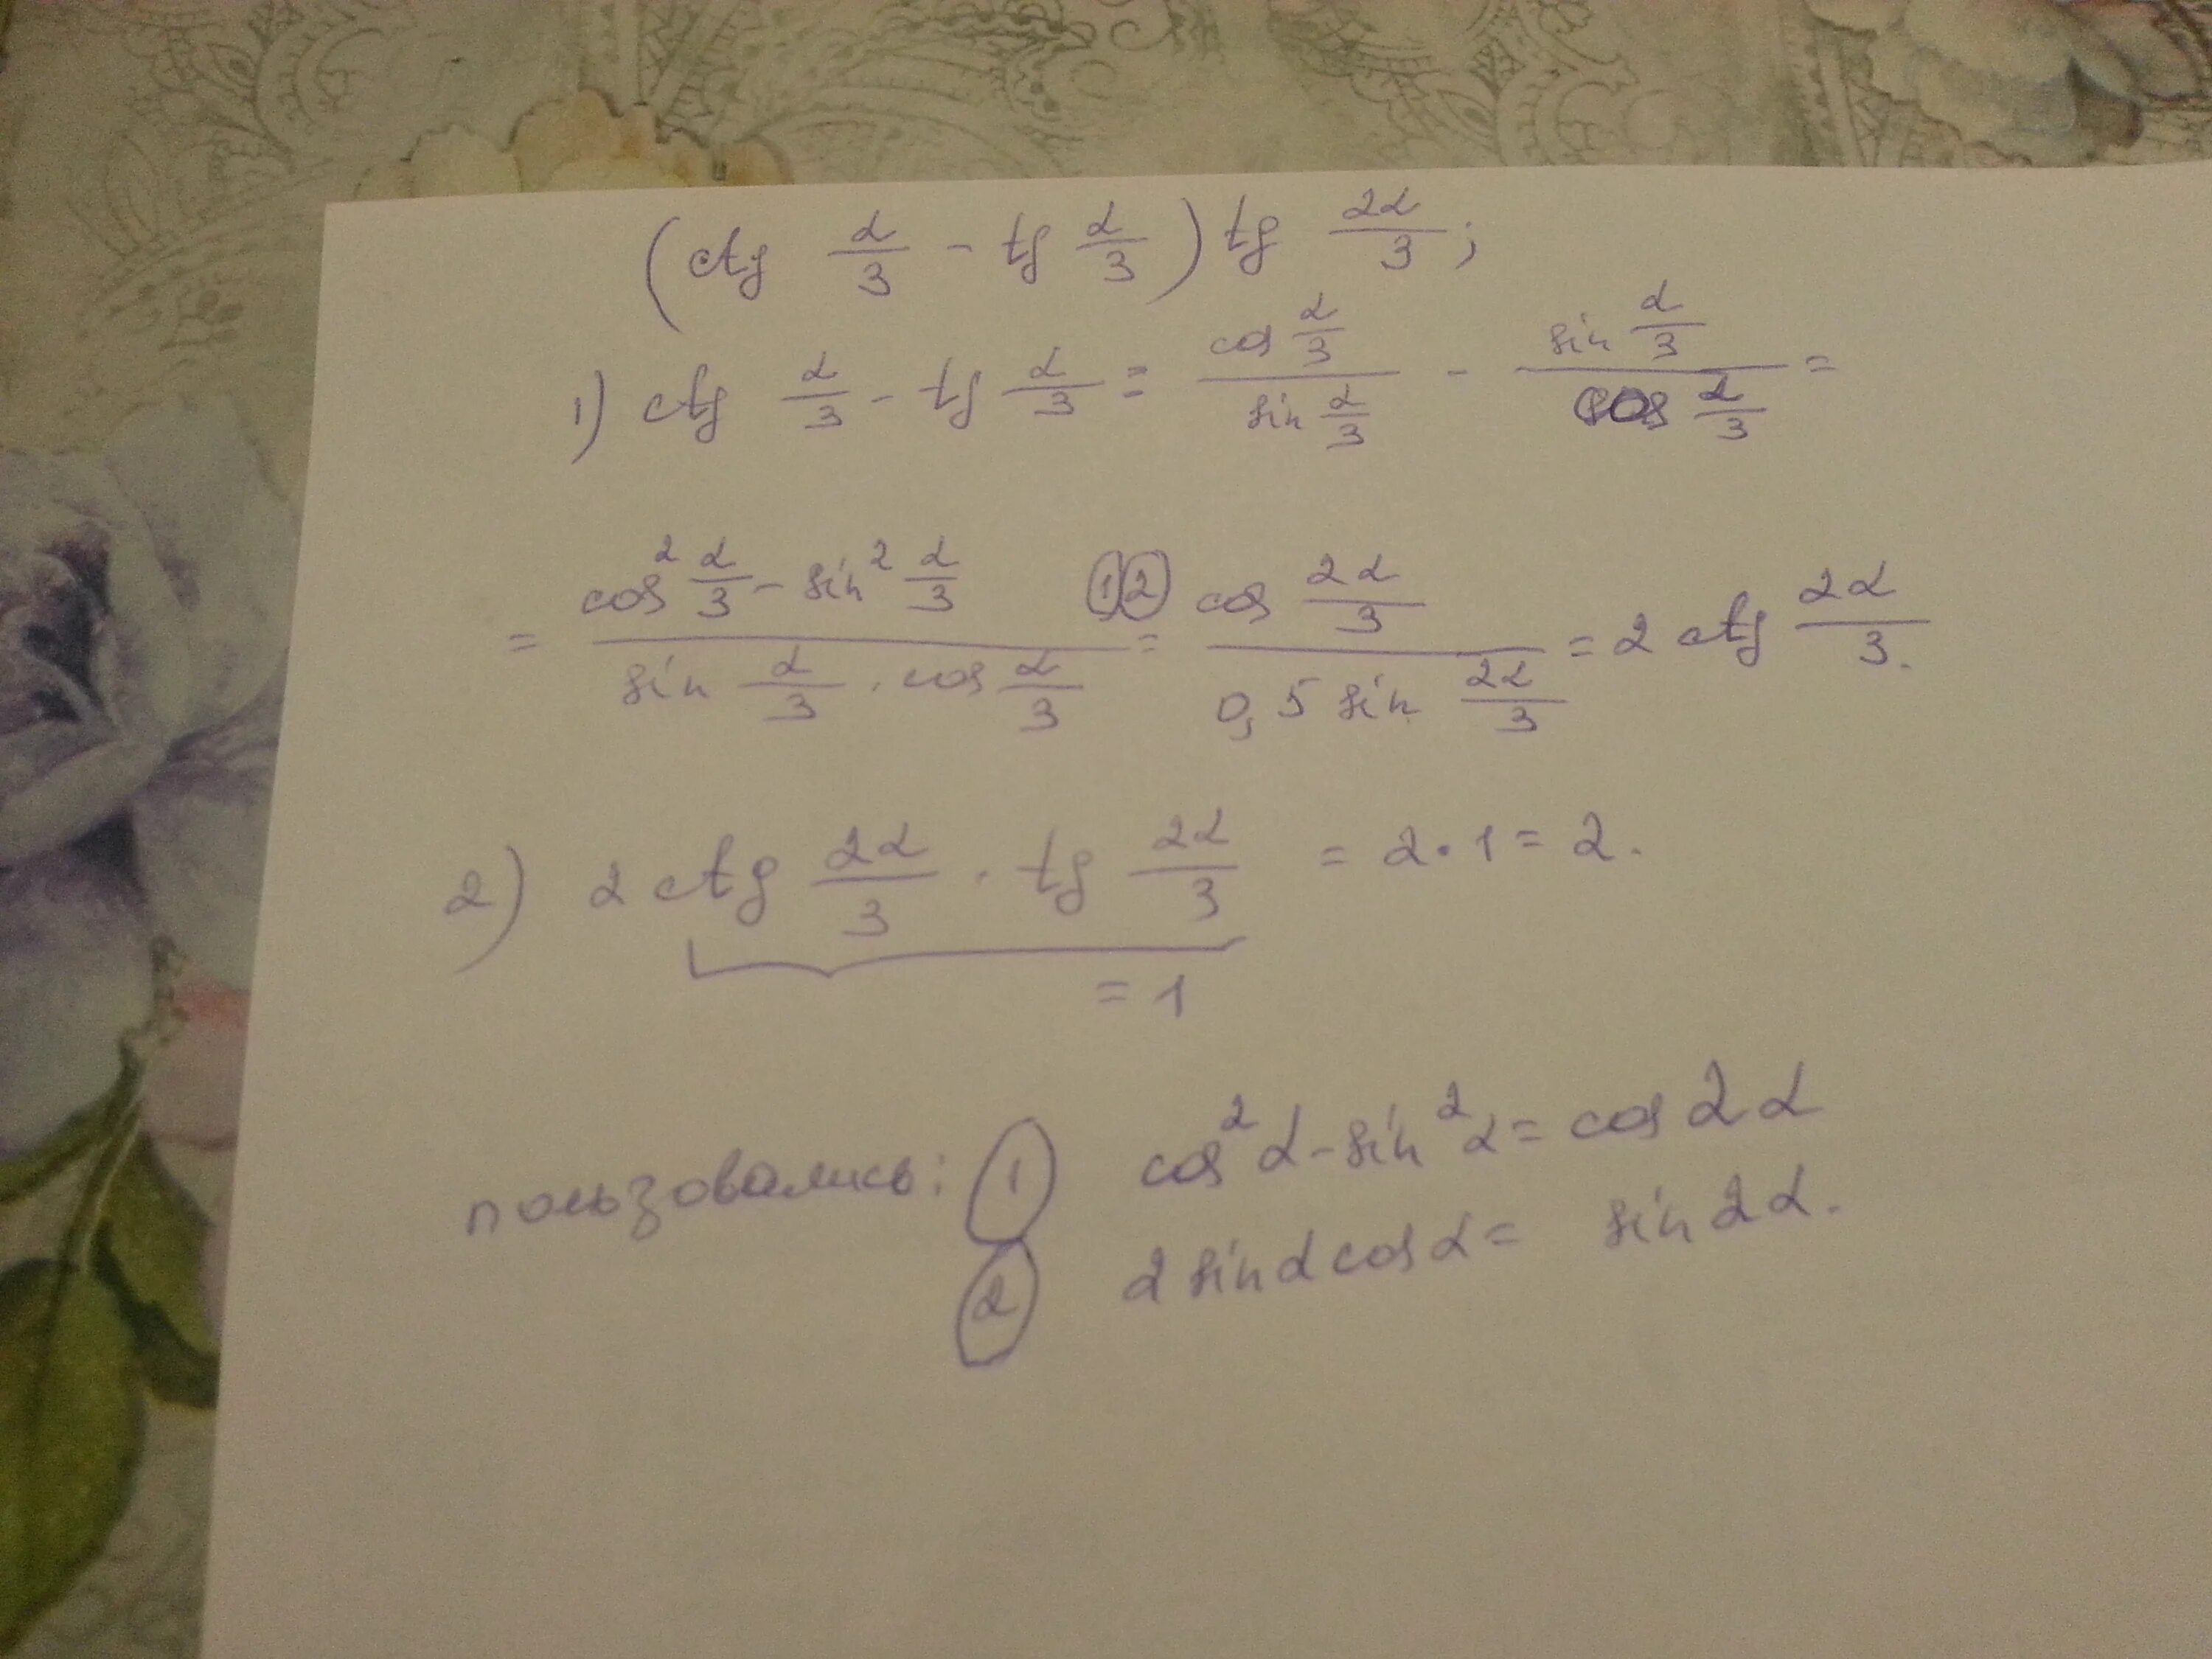 (ctg α/3 - tg α/3) tg 2α/3;
1) ctg α/3 - tg α/3 = cos α/3 / sin α/3 - sin α/3 / cos α/3 =
= cos² α/3 - sin² α/3 / sin α/3 · cos α/3 ①② = cos 2α/3 / 0,5 sin 2α/3 = 2 ctg 2α/3.
2) 2 ctg 2α/3 · tg 2α/3 = 2·1 = 2.
= 1
пользовались: ① cos²α - sin²α = cos 2α
② 2 sinα cosα = sin 2α.